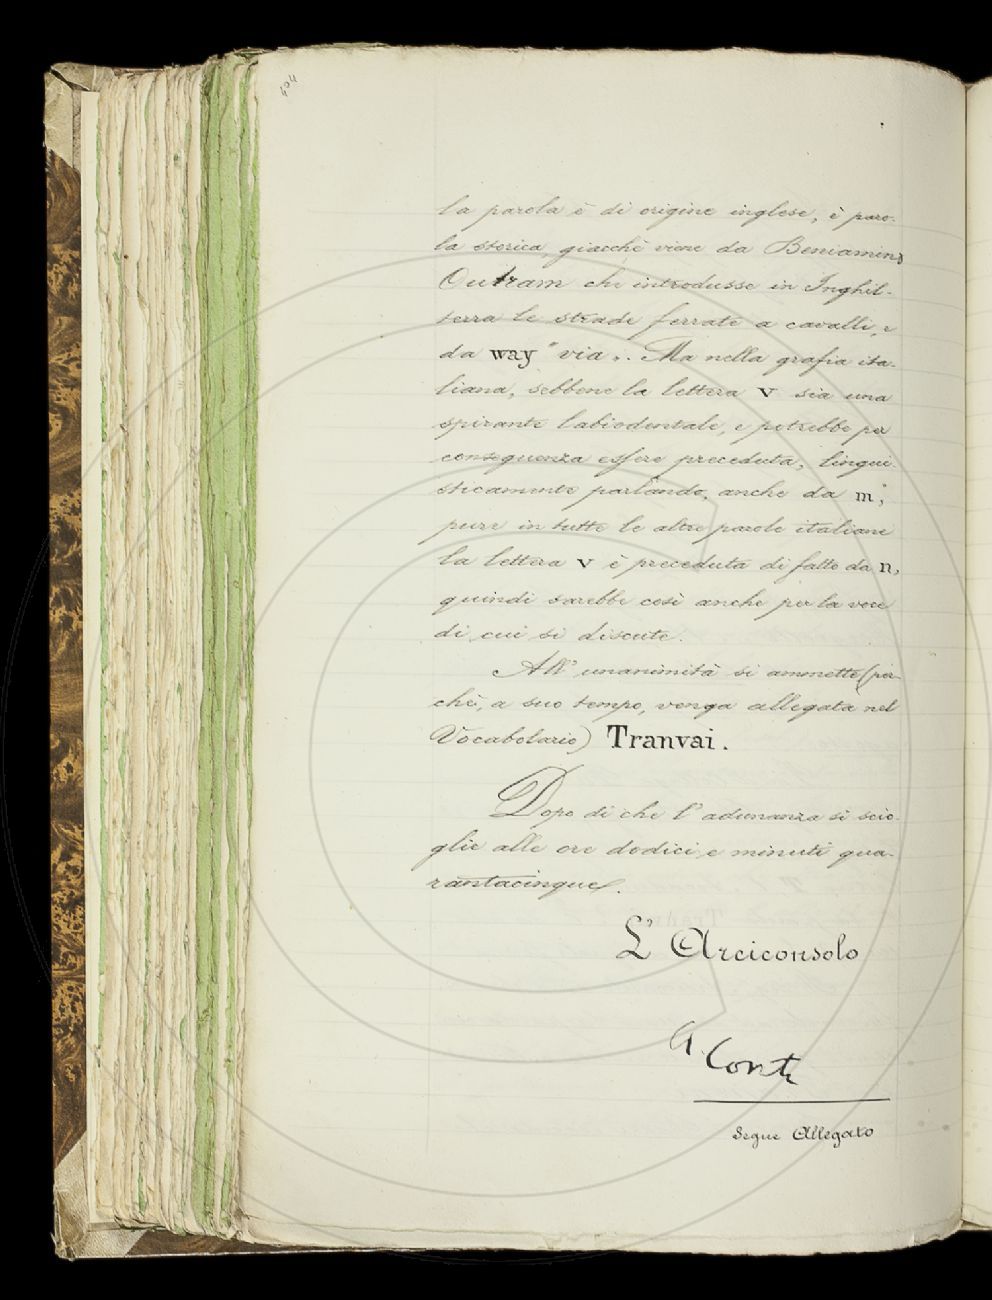 404
la parola è di origine inglese, è paro-
la storica, giacchè viene da Beniamino
Outram che introdusse in Inghil-
terra le strade ferrate a cavalli, e
da way "via„. Ma nella grafia ita-
liana, sebbene la lettera v sia una
spirante labiodentale, e potrebbe per
conseguenza essere preceduta, lingui-
sticamente parlando, anche da m;
pure in tutte le altre parole italiane
la lettera v è preceduta di fatto da n,
quindi sarebbe così anche per la voce
di cui si discute.
All' unanimità si ammette (per-
chè, a suo tempo, venga allegata nel
Vocabolario) Tranvai.
Dopo di che l' adunanza si scio-
glie alle ore dodici e minuti qua-
rantacinque.
L' Arciconsolo
A. Conti
Segue Allegato